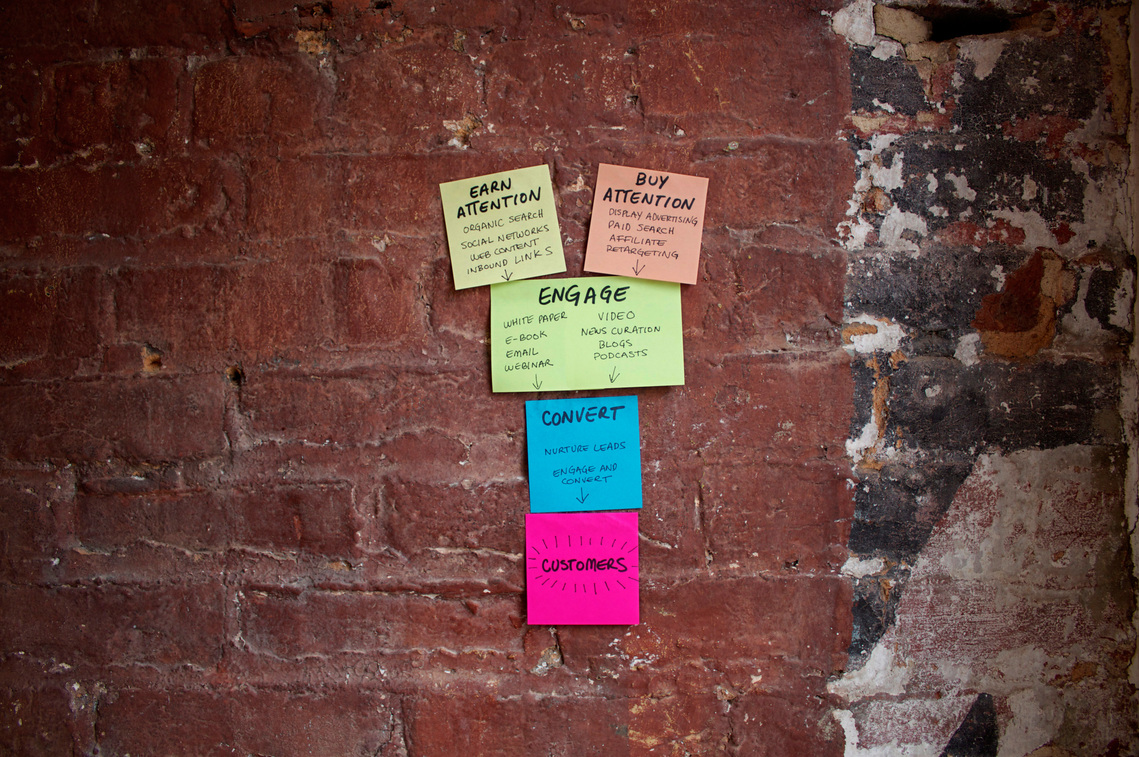 EARN
ATTENTION
ORGANIC SEARCH
SOCIAL NETWORKS
WEB CONTENT
INBOUND LINKS
BUY
ATTENTION
DISPLAY ADVERTISING
PAID SEARCH
AFFILIATE
RETARGETING
ENGAGE
WHITE PAPER
E-BOOK
EMAIL
WEBINAR
VIDEO
NEWS CURATION
BLOGS
PODCASTS
CONVERT
NURTURE LEADS
ENGAGE AND
CONVERT
CUSTOMERS